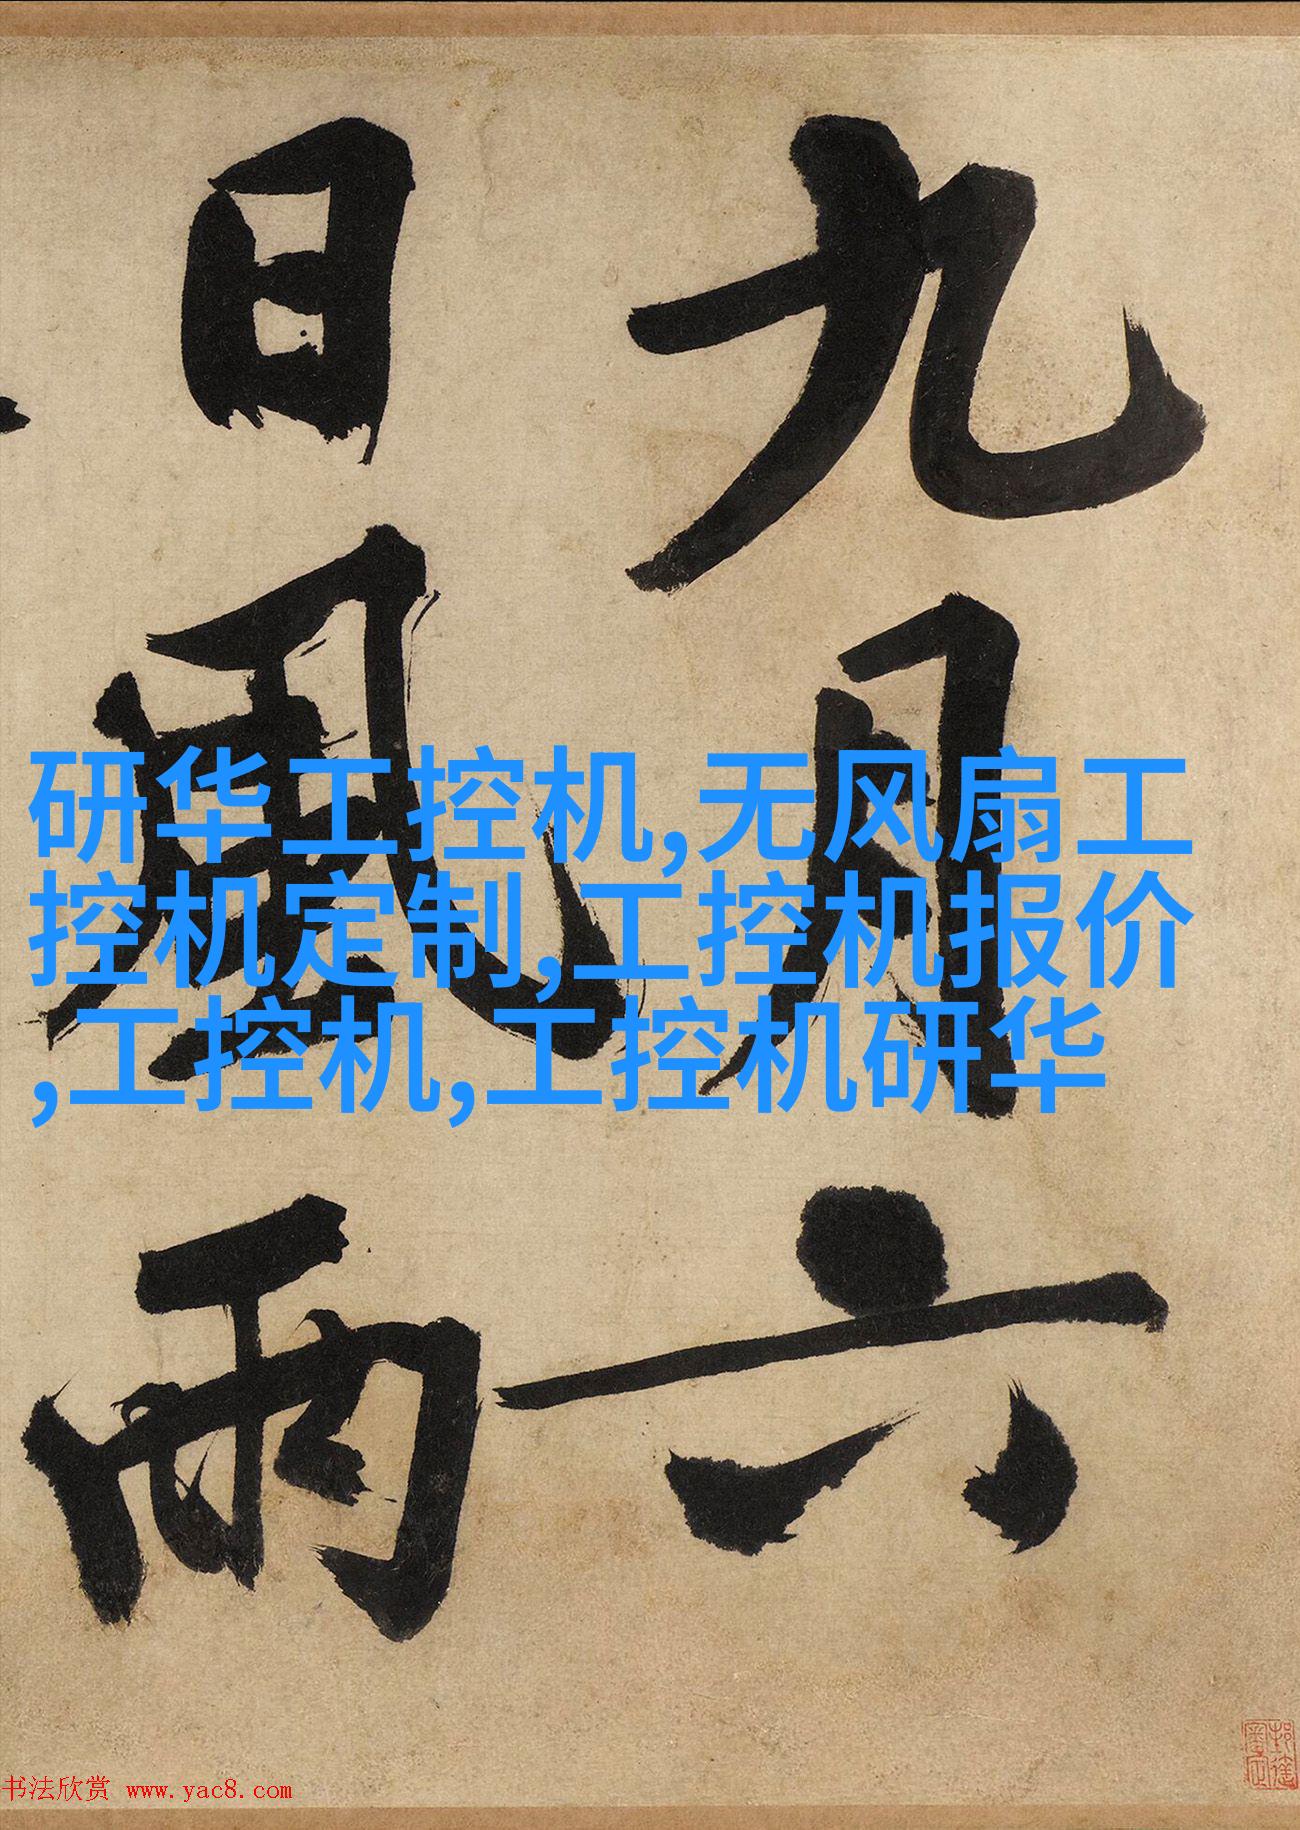 九月六
日風雨
研华工控机,无风扇工
控机定制,工控机报价
,工控机,工控机研华
书法欣赏 www.yac8.com